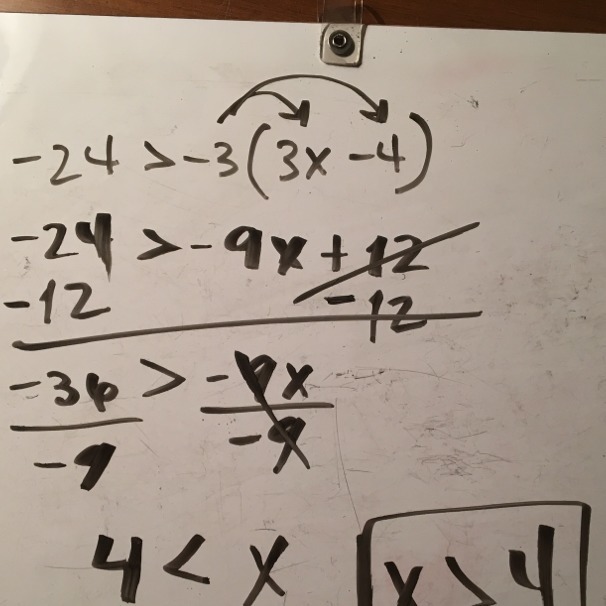 -24 > -3(3x -4)
-24 > -9x + 12
-12 -12
-36 > -9x
-9 -9
4 < x x > 4